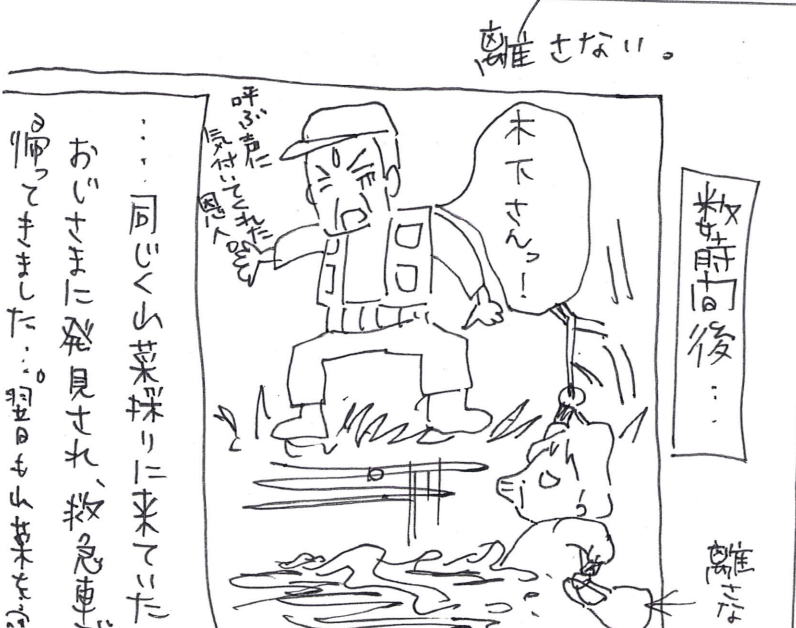 離さない。
数時間後…
離さな
木下さんっ！
呼ぶ声に
気付いてくれた
恩人
…同じく山菜採りに来ていた
おじさまに発見され、救急車で
帰ってきました…。翌日も山菜を